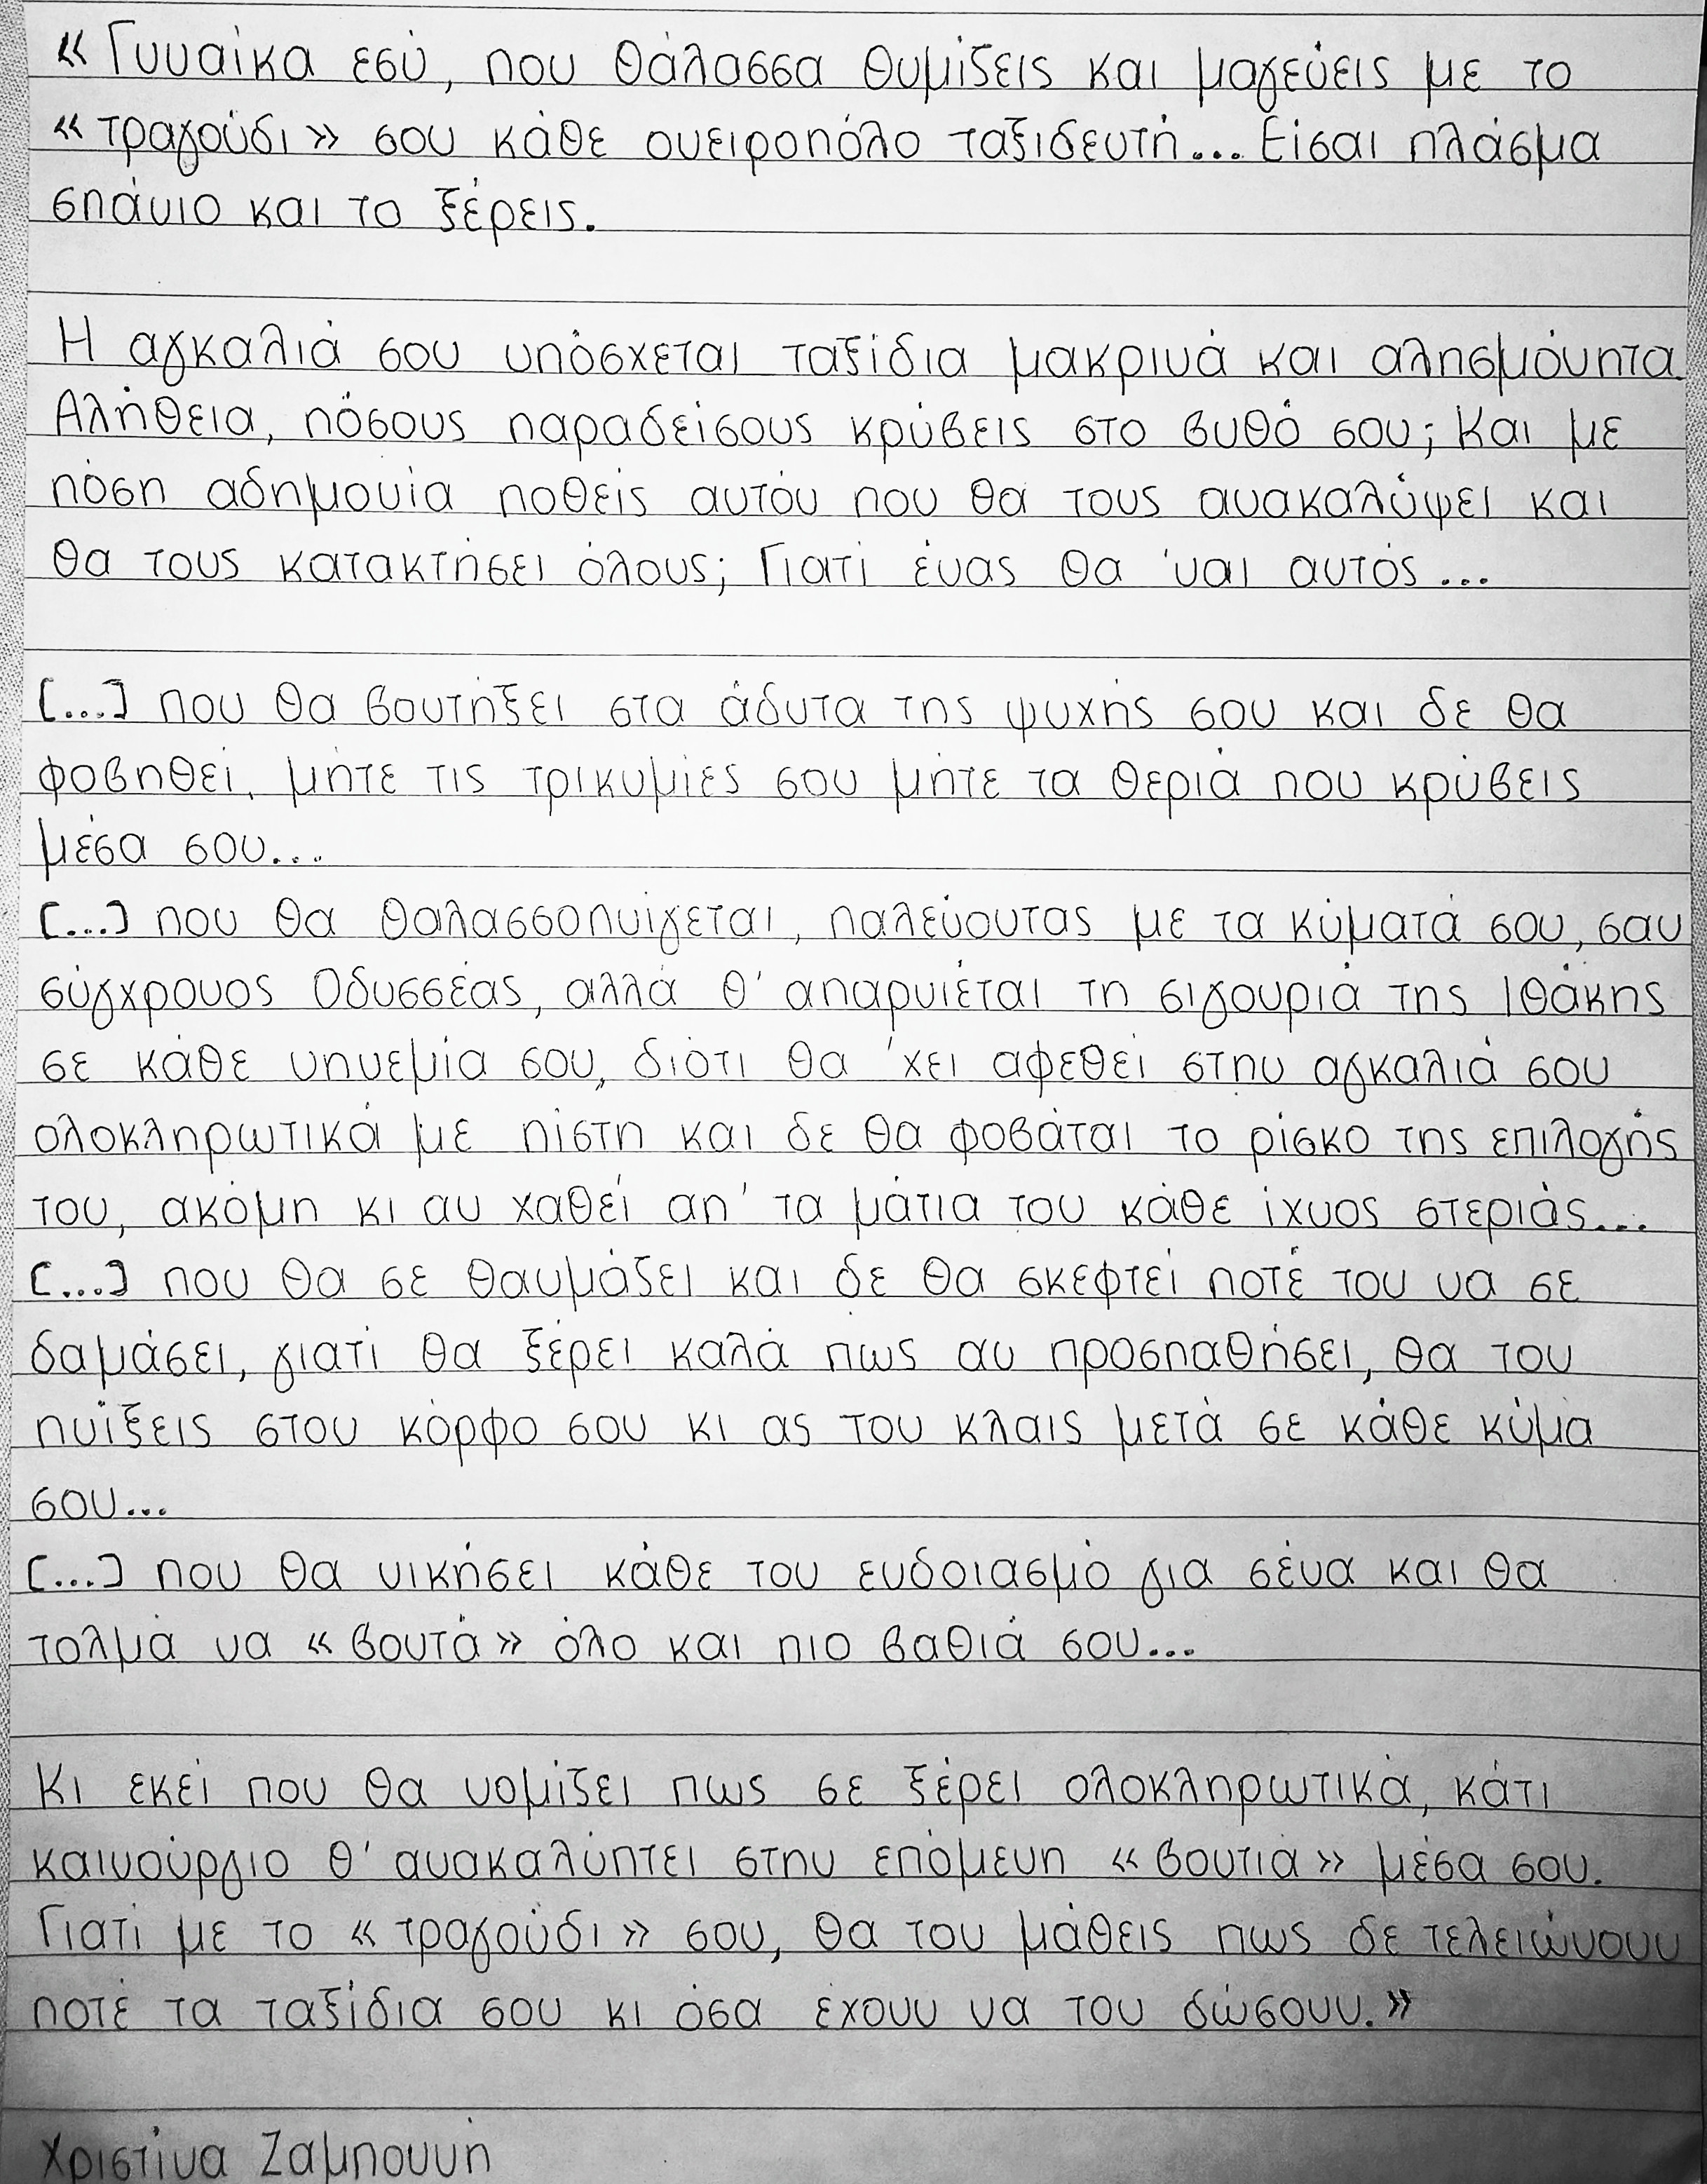 «Γυναίκα εσύ, που θάλασσα θυμίζεις και μαγεύεις με το
«τραγούδι» σου κάθε ονειροπόλο ταξιδευτή... Είσαι πλάσμα
σπάνιο και το ξέρεις.
Η αγκαλιά σου υπόσχεται ταξίδια μακρινά και αλησμόνητα.
Αλήθεια, πόσους παραδείσους κρύβεις στο βυθό σου; Και με
πόση αδημονία ποθείς αυτόν που θα τους ανακαλύψει και
θα τους κατακτήσει όλους; Γιατί ένας θα 'ναι αυτός...
[...] που θα βουτήξει στα άδυτα της ψυχής σου και δε θα
φοβηθεί, μήτε τις τρικυμίες σου μήτε τα θεριά που κρύβεις
μέσα σου...
[...] που θα θαλασσοπνίγεται, παλεύοντας με τα κύματά σου, σαν
σύγχρονος Οδυσσέας, αλλά θ' απαρνιέται τη σιγουριά της Ιθάκης
σε κάθε νηνεμία σου, διότι θα 'χει αφεθεί στην αγκαλιά σου
ολοκληρωτικά με πίστη και δε θα φοβάται το ρίσκο της επιλογής
του, ακόμη κι αν χαθεί απ' τα μάτια του κάθε ίχνος στεριάς...
[...] που θα σε θαυμάζει και δε θα σκεφτεί ποτέ του να σε
δαμάσει, γιατί θα ξέρει καλά πως αν προσπαθήσει, θα τον
πνίξεις στον κόρφο σου κι ας τον κλαις μετά σε κάθε κύμα
σου...
[...] που θα νικήσει κάθε του ενδοιασμό για σένα και θα
τολμά να «βουτά» όλο και πιο βαθιά σου...
Κι εκεί που θα νομίζει πως σε ξέρει ολοκληρωτικά, κάτι
καινούργιο θ' ανακαλύπτει στην επόμενη «βουτιά» μέσα σου.
Γιατί με το «τραγούδι» σου, θα του μάθεις πως δε τελειώνουν
ποτέ τα ταξίδια σου κι όσα έχουν να του δώσουν.»
Χριστίνα Ζαμπούνη